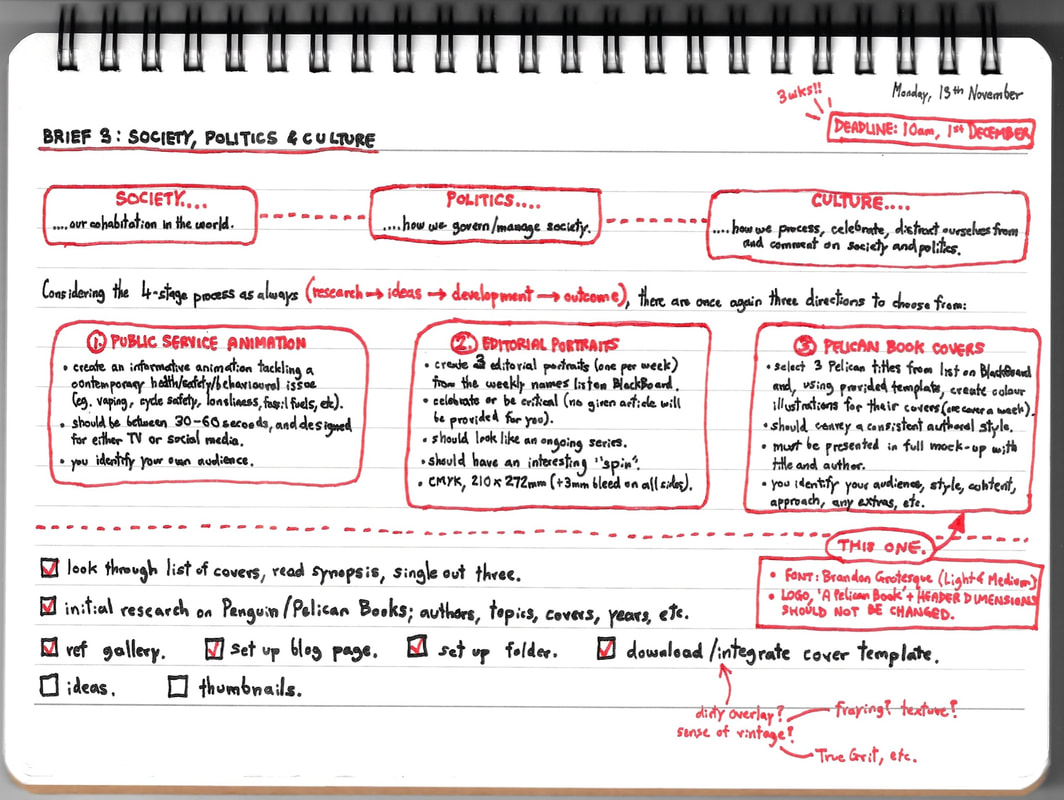 Monday, 13th November
3wks!!
DEADLINE: 10am, 1st DECEMBER
BRIEF 3: SOCIETY, POLITICS & CULTURE
SOCIETY....
....our cohabitation in the world.
POLITICS....
....how we govern/manage society.
CULTURE....
....how we process, celebrate, distract ourselves from
and comment on society and politics.
Considering the 4-stage process as always (research → ideas → development → outcome), there are once again three directions to choose from:
1. PUBLIC SERVICE ANIMATION
• create an informative animation tackling a
contemporary health/safety/behavioural issue
(eg. vaping, cycle safety, loneliness, fossil fuels, etc).
• should be between 30-60 seconds, and designed
for either TV or social media.
• you identify your own audience.
2. EDITORIAL PORTRAITS
• create 3 editorial portraits (one per week)
from the weekly names list on BlackBoard.
• celebrate or be critical (no given article will
be provided for you).
• should look like an ongoing series.
• should have an interesting "spin".
• CMYK, 210 x 272mm (+3mm bleed on all sides).
3. PELICAN BOOK COVERS
• select 3 Pelican titles from list on BlackBoard
and, using provided template, create colour
illustrations for their covers (one cover a week).
• should convey a consistent authorial style.
• must be presented in full mock-up with
title and author.
• you identify your audience, style, content,
approach, any extras, etc.
THIS ONE.
• FONT: Brandon Grotesque (Light & Medium)
• LOGO, 'A Pelican Book' + HEADER DIMENSIONS
SHOULD NOT BE CHANGED.
look through list of covers, read synopsis, single out three.
initial research on Penguin/Pelican Books; authors, topics, covers, years, etc.
ref gallery. set up blog page. set up folder. download/integrate cover template.
ideas. thumbnails.
dirty overlay?
sense of vintage?
fraying? texture?
True Grit, etc.